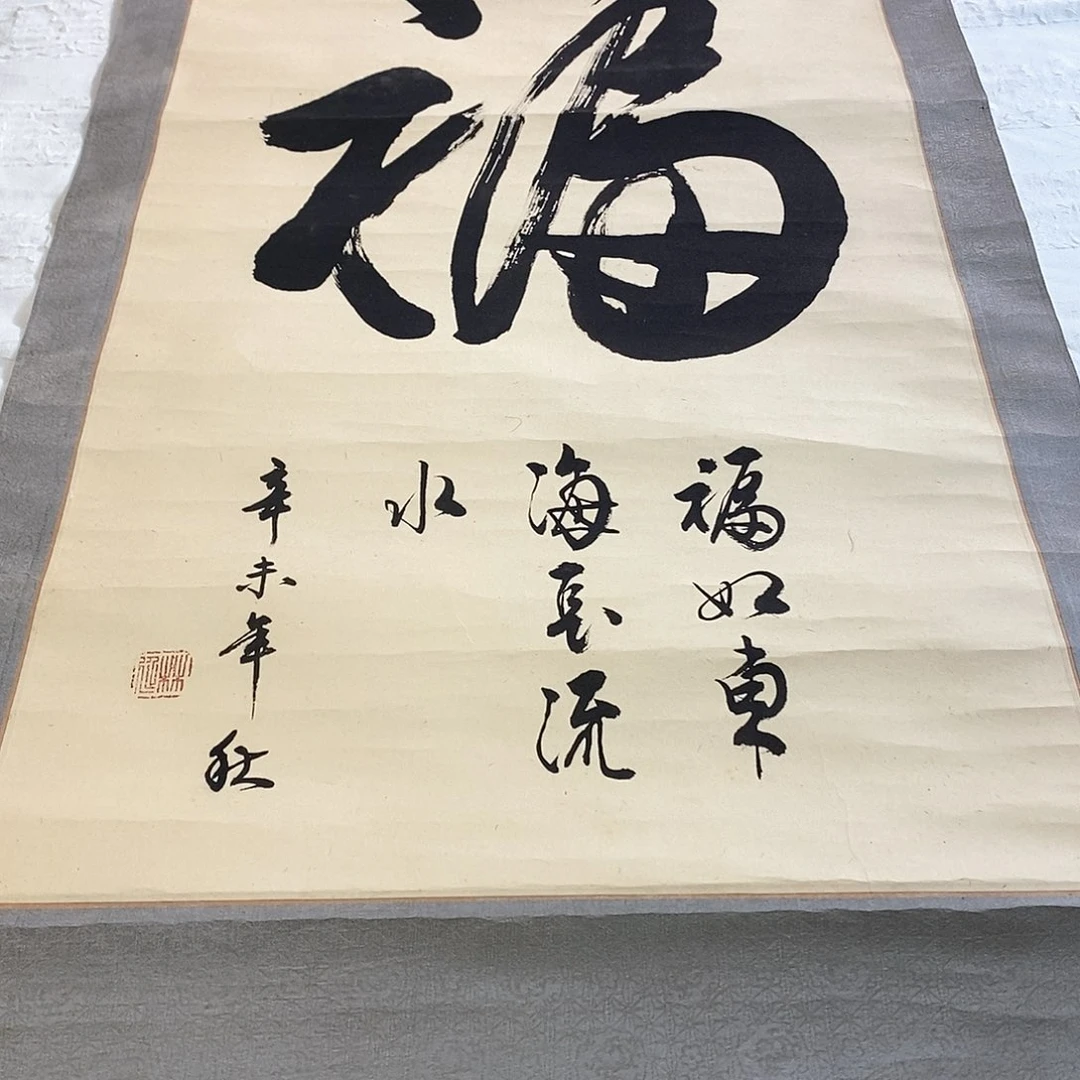 福
福如東
海長流
水
辛未年秋